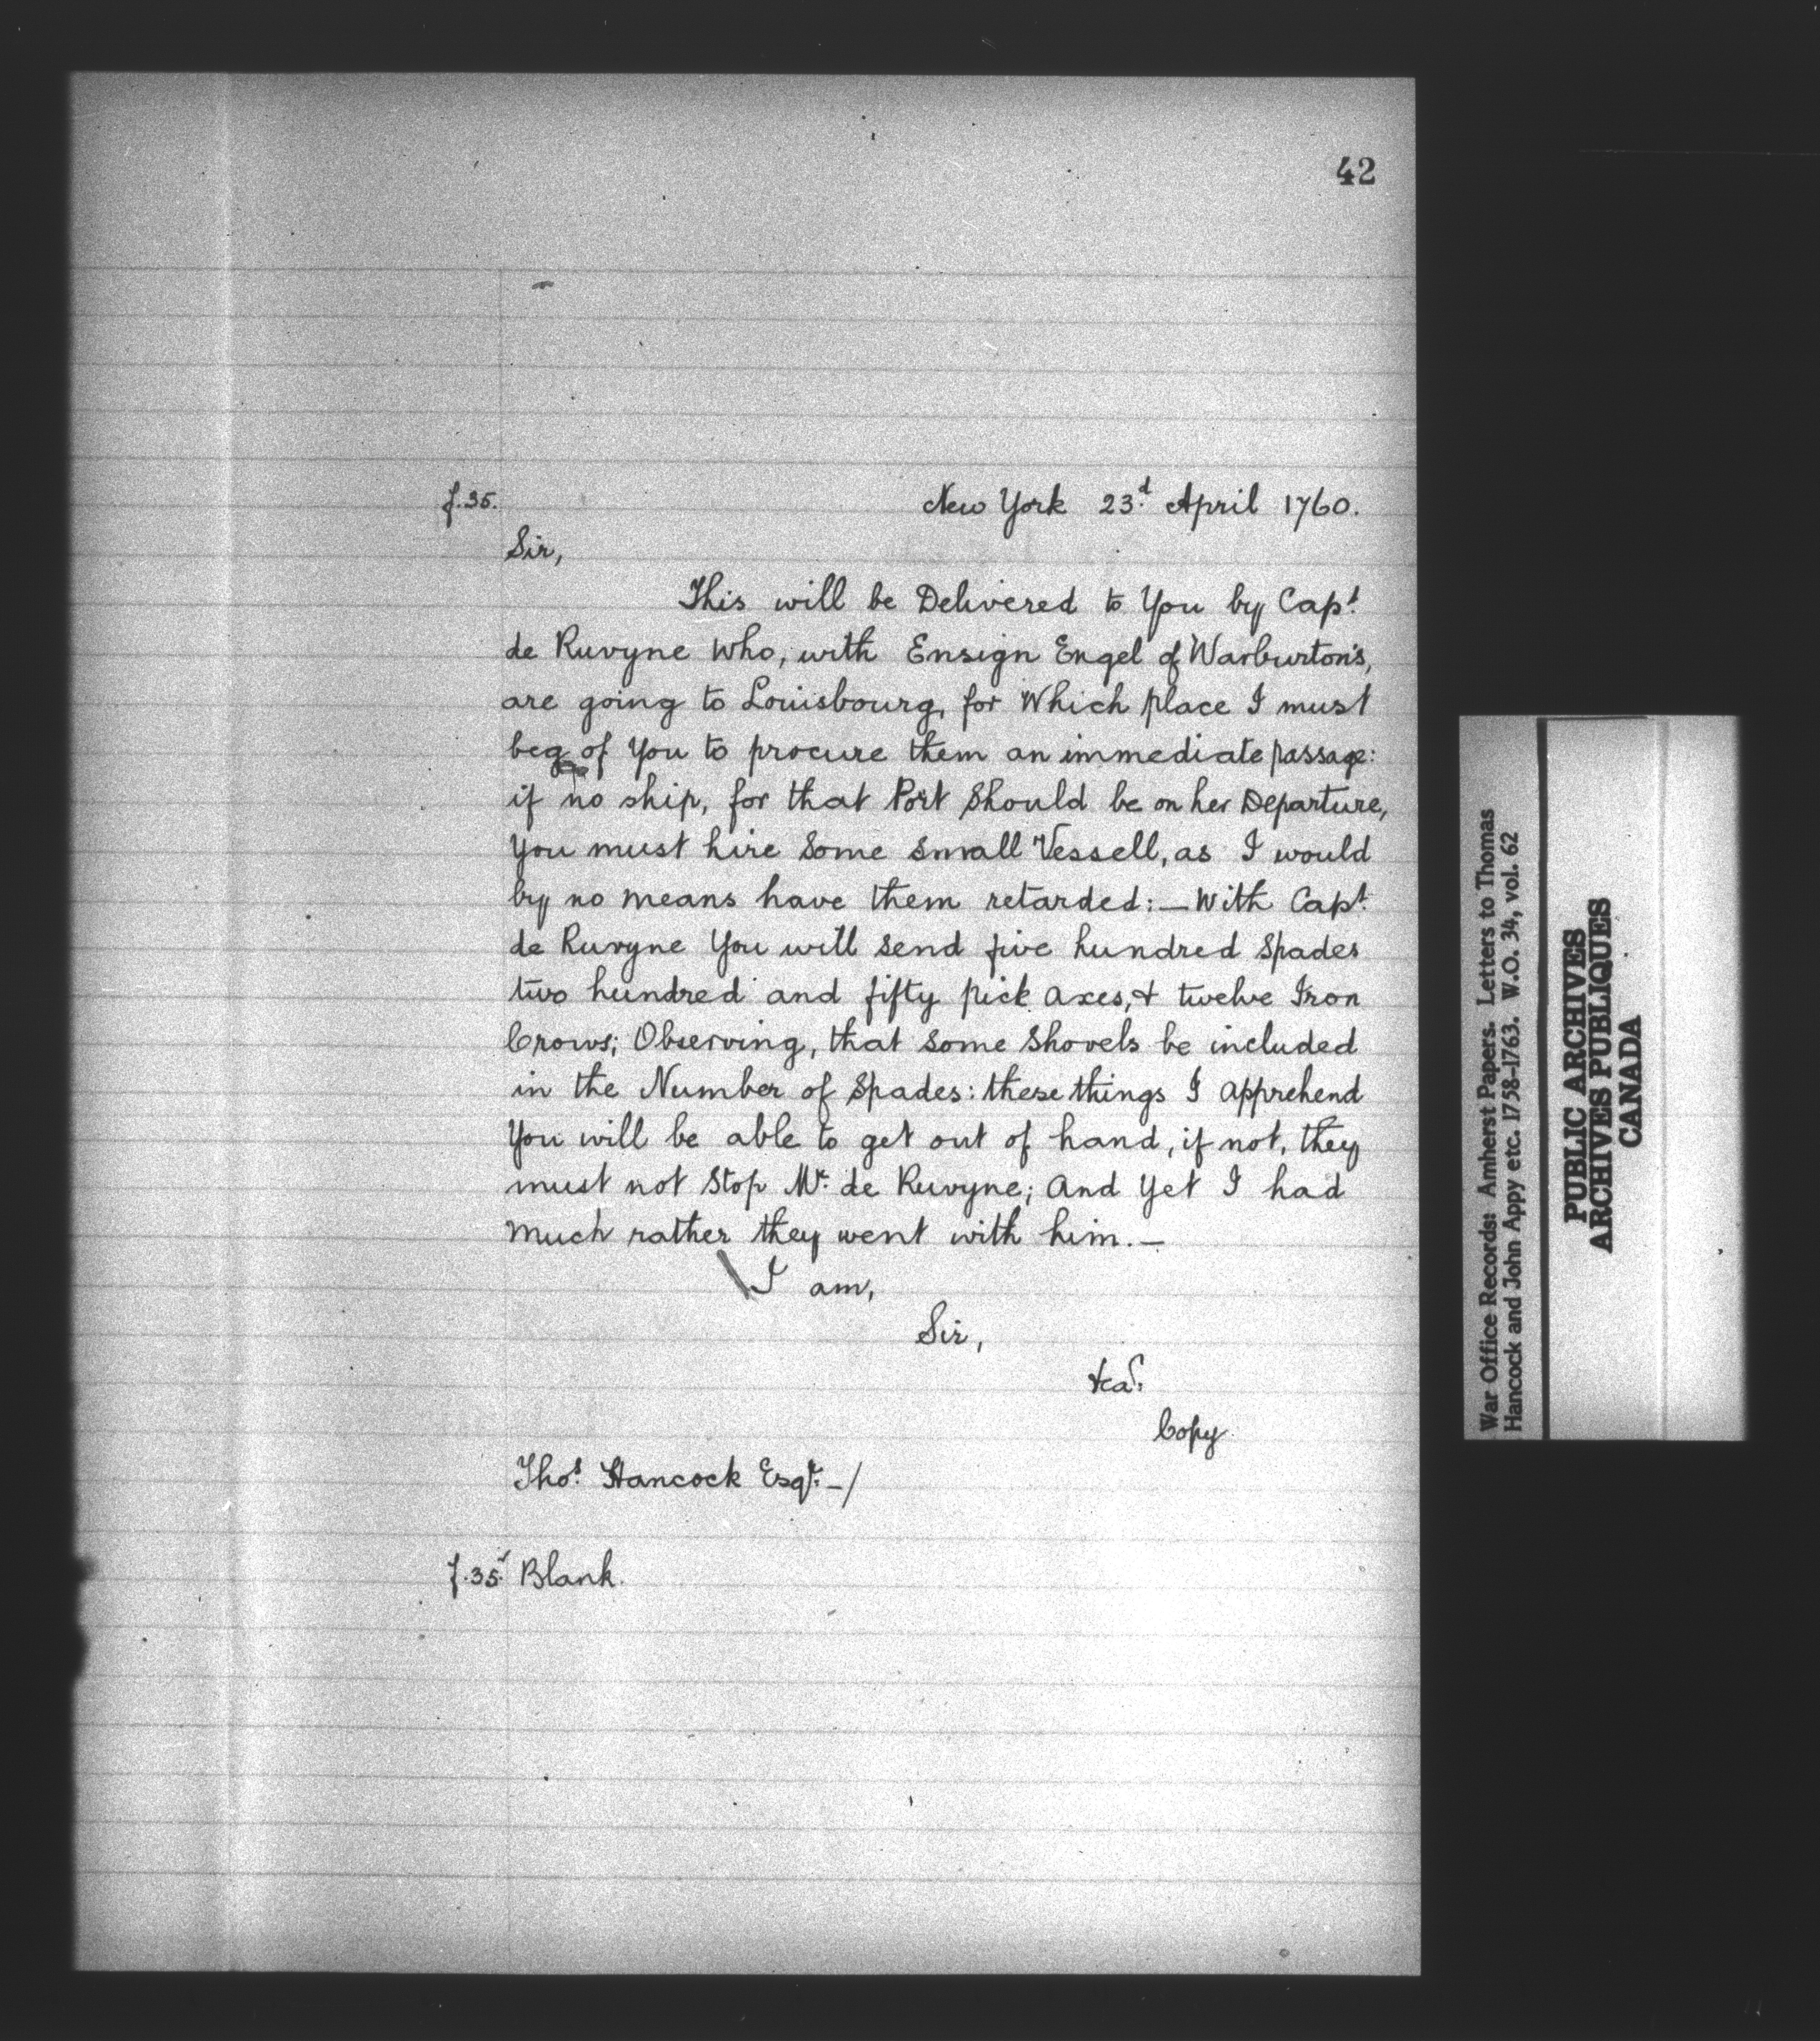 42
f.35. New York 23d. April 1760.
Sir,
This will be Delivered to You by Capt.
de Ruvyne Who, with Ensign Engel of Warburton's,
are going to Louisbourg, for Which place I must
beg of You to procure them an immediate passage:
if no ship, for that Port Should be on her Departure,
You must hire Some Small Vessell, as I would
by no means have them retarded:—With Capt.
de Ruvyne You will Send five hundred Spades
two hundred and fifty pick axes, & twelve Iron
Crows; Observing, that Some Shovels be included
in the Number of Spades: these things I apprehend
You will be able to get out of hand, if not, they
must not Stop Mr. de Ruvyne; And Yet I had
Much rather they went with him.—
I am,
Sir,
&ca.
Copy
Thos. Hancock Esqr.—/
f.35v Blank.
War Office Records: Amherst Papers. Letters to Thomas
Hancock and John Appy etc. 1758-1763. W.O. 34, vol. 62
PUBLIC ARCHIVES
ARCHIVES PUBLIQUES
CANADA